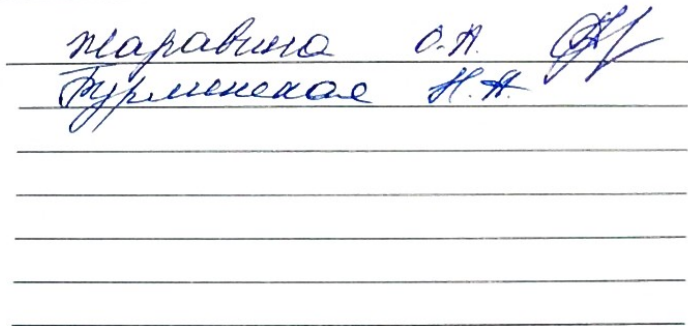 Жаравина О.А.
Бурминская Н.А.